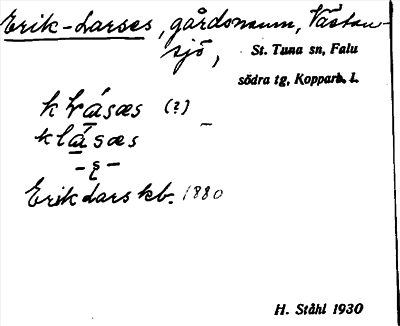 Erik-Larses, gårdsnamn, Västan-
sjö,
St. Tuna sn, Falu
södra tg, Kopparb. l.
k lrásæs (?)
klásæs
- ş -
Erik Lars kb. 1880
H. Ståhl 1930